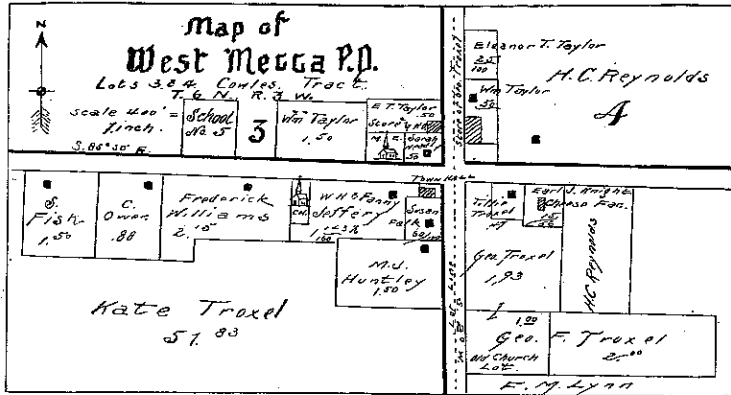 N
Map of
West Mecca P.O.
Lots 3 & 4 Cowles Tract
T. 6 N. R. 3 W.
Scale 400' =
1 inch.
S. 86° 30' E.
School
No 5
3
Wm Taylor
1.50
E T. Taylor
.50
Store
M. E.
Sarah
50
Eleanor T. Taylor
25
100
Wm Taylor
.50
H.C. Reynolds
4
TOWN HALL
S.
Fish
1.50
C.
Owen
.88
Frederick
Williams
2.15
CH.
W H & Fanny
Jeffery
Susan
Falk
60/100
M.J.
Huntley
1.50
Kate Troxel
51.83
Tillie
Troxel
Earl J. Knight
Cheese Fac.
Geo. Troxel
1.93
H.C. Reynolds
Lot Line
1.00
Geo. F. Troxel
2.00
Old Church
Lot.
F. M. Lynn